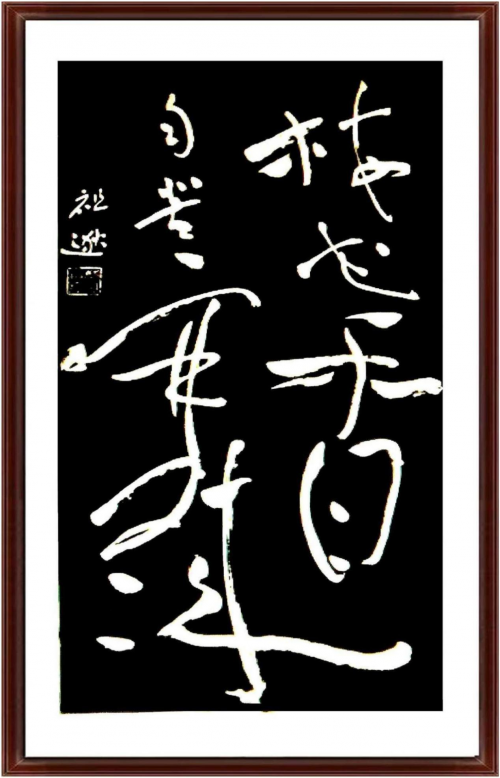 梅花香
自苦寒来
祖逖